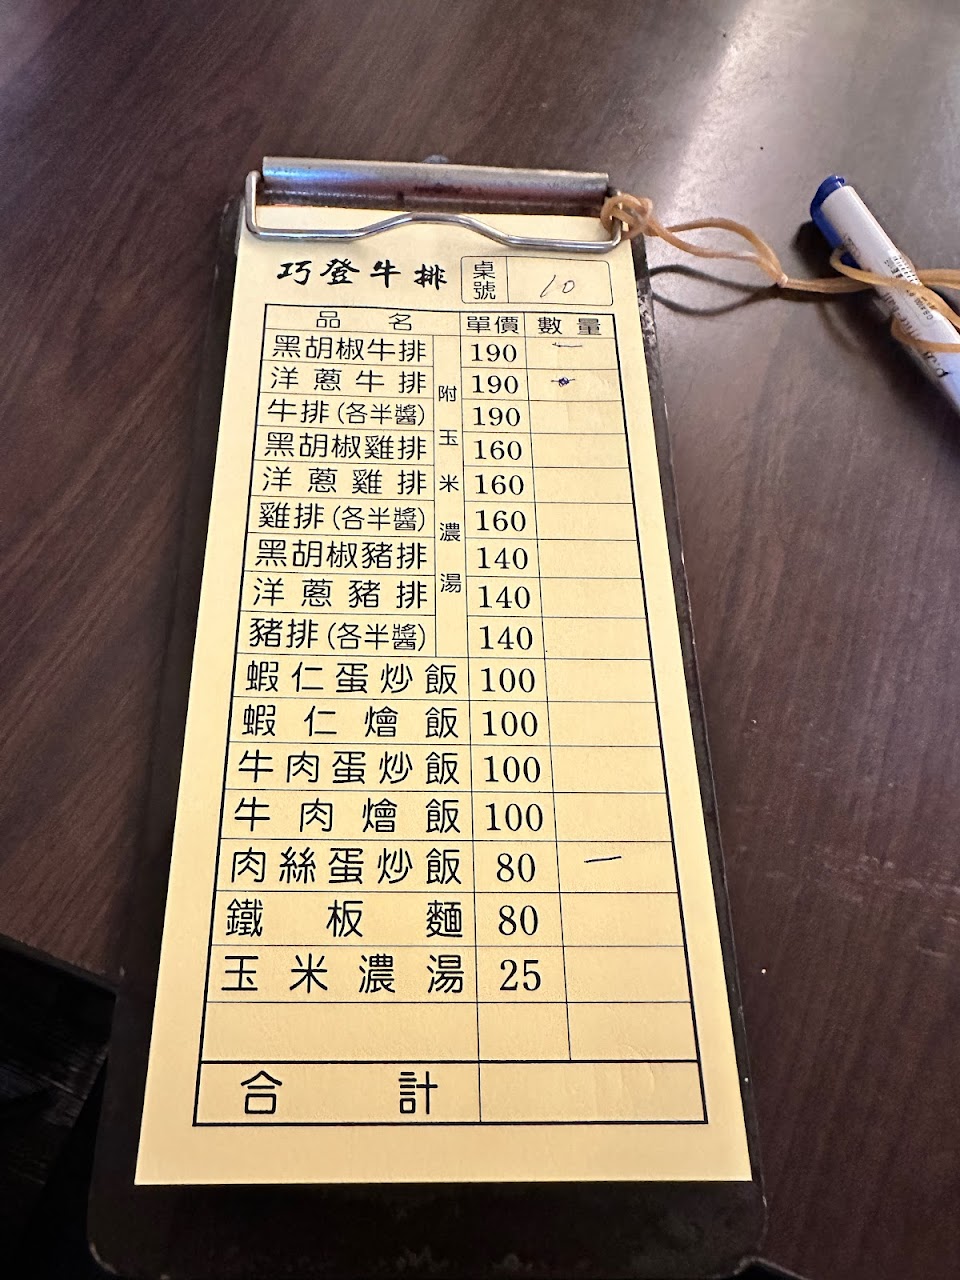 巧登牛排 桌號 10
品名 單價 數量
黑胡椒牛排 190 一
洋蔥牛排 190
牛排(各半醬) 190
黑胡椒雞排 160
洋蔥雞排 160
雞排(各半醬) 160
黑胡椒豬排 140
洋蔥豬排 140
豬排(各半醬) 140
附玉米濃湯
蝦仁蛋炒飯 100
蝦仁燴飯 100
牛肉蛋炒飯 100
牛肉燴飯 100
肉絲蛋炒飯 80 一
鐵板麵 80
玉米濃湯 25
合計